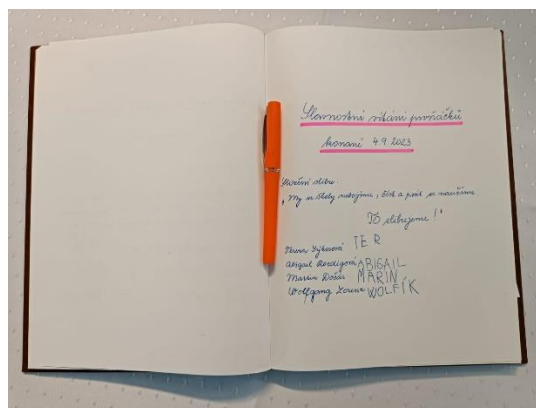 Slavnostní vítání prvňáčků
konané 4.9.2023
Složení slibu.
„My se školy nebojíme, číst a psát se naučíme.
TO slibujeme!"
Tereza TER
Abigail ABIGAIL
Martin MARIN
Wolfgang Lorenc WOLFÍK